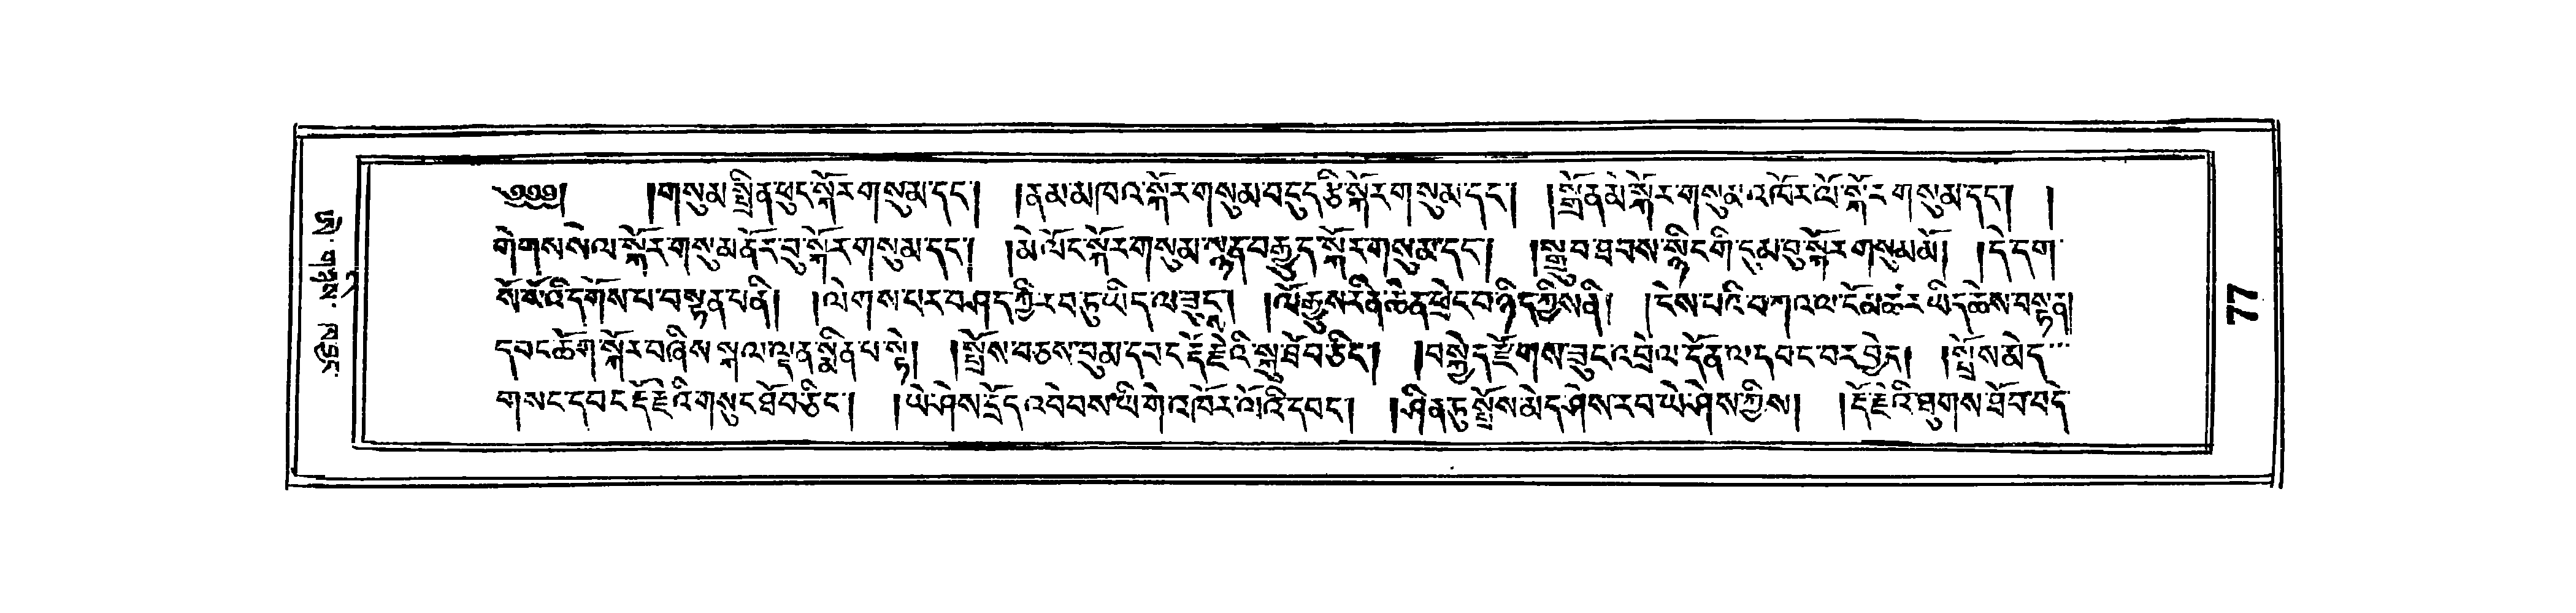 ༄༅༅། །གསུམ་སྤྲིན་ཕུང་སྐོར་གསུམ་དང་། །ནམ་མཁའ་སྐོར་གསུམ་བདུད་རྩི་སྐོར་གསུམ་དང་། །སྒྲོན་མེ་སྐོར་གསུམ་འཁོར་ལོ་སྐོར་གསུམ་དང་། །
གེགས་སེལ་སྐོར་གསུམ་ནོར་བུ་སྐོར་གསུམ་དང་། །མེ་ལོང་སྐོར་གསུམ་སྙན་བརྒྱུད་སྐོར་གསུམ་དང་། །སྒྲུབ་ཐབས་སྙིང་གི་དུམ་བུ་སྐོར་གསུམ་མོ། །དེ་དག་
སོ་སོའི་དགོས་པ་བསྟན་པ་ནི། །ལེགས་པར་བཤད་ཀྱི་རབ་ཏུ་ཡིད་ལ་ཟུང་། །ལོ་རྒྱུས་རིན་ཆེན་ཕྲེང་བ་ཉིད་ཀྱིས་ནི། །ངེས་པའི་བཀའ་ལ་ངོ་མཚར་ཡིད་ཆེས་བསྟན།
དབང་ཆོག་སྐོར་བཞིས་སྐལ་ལྡན་སྨིན་པ་སྟེ། །སྤྲོས་བཅས་བུམ་དབང་རྡོ་རྗེའི་སྐུ་ཐོབ་ཅིང་། །བསྐྱེད་རྫོགས་ཟུང་འབྲེལ་དོན་ལ་དབང་བར་བྱེད། །སྤྲོས་མེད་
གསང་དབང་རྡོ་རྗེའི་གསུང་ཐོབ་ཅིང་། །ཡེ་ཤེས་དྲོད་འབེབས་ཡི་གེ་འཁོར་ལོའི་དབང་། །ཤིན་ཏུ་སྤྲོས་མེད་ཤེས་རབ་ཡེ་ཤེས་ཀྱིས། །རྡོ་རྗེའི་ཐུགས་ཐོབ་བདེ་
77